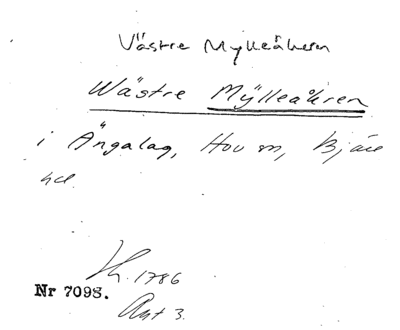 Västre Mylleåkern
Wästre Mÿlleåkren
i Ängalag, Hov sn, Bjäre
hd.
1786
Nr 7098.
Akt 3.